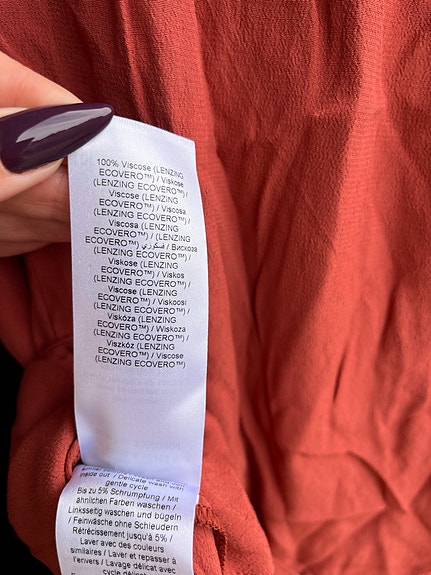 100% Viscose (LENZING
ECOVERO™) / Viskose
(LENZING ECOVERO™) /
Viscose (LENZING
ECOVERO™) / Viscosa
(LENZING ECOVERO™) /
Viscosa (LENZING
ECOVERO™) / (LENZING
ECOVERO™) فسكوزي / Вискоза
(LENZING ECOVERO™) /
Viskose (LENZING
ECOVERO™) / Viskos
(LENZING ECOVERO™) /
Viscose (LENZING
ECOVERO™) / Viskoosi
(LENZING ECOVERO™) /
Viskóza (LENZING
ECOVERO™) / Wiskoza
(LENZING ECOVERO™) /
Viszkóz (LENZING
ECOVERO™) / Viscose
(LENZING ECOVERO™)
inside out / Delicate wash with
gentle cycle
Bis zu 5% Schrumpfung / Mit
ähnlichen Farben waschen /
Linksseitig waschen und bügeln
/ Feinwäsche ohne Schleudern
Rétrécissement jusqu'à 5% /
Laver avec des couleurs
similaires / Laver et repasser à
l'envers / Lavage délicat avec
cycle